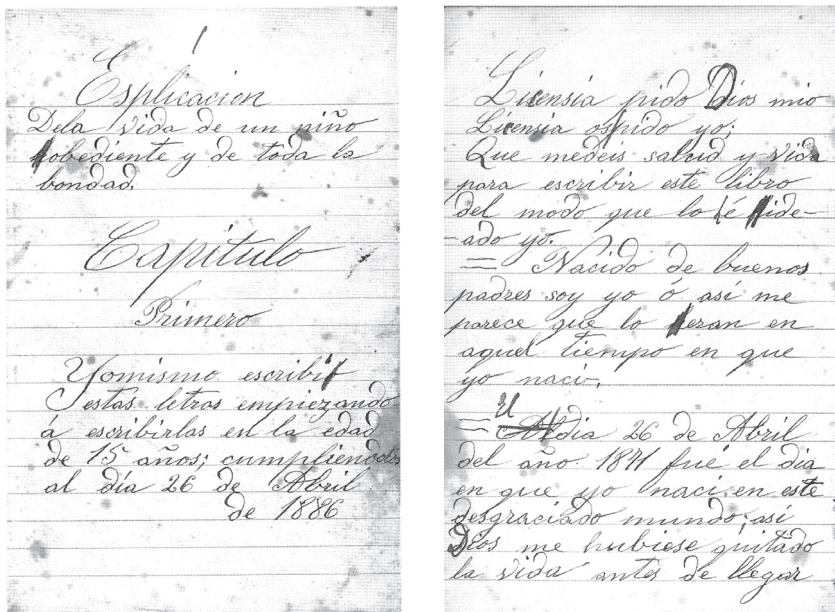 1
Esplicacion
Dela vida de un niño
obediente y de toda la
bondad.
Capitulo
Primero
Yomismo escribi
estas letras empiezando
á escribirlas en la edad
de 15 años; cumpliendolos
al dia 26 de Abril
de 1886
Licensia pido Dios mio
Licensia os pido yo;
Que medeis salud y vida
para escribir este libro
del modo que lo é ide-
-ado yo.
= Nacido de buenos
padres soy yo ó así me
parece que lo eran en
aquel tiempo en que
yo naci.
= El dia 26 de Abril
del año. 1871 fué el dia
en que yo naci en este
desgraciado mundo; así
Dios me hubiese quitado
la vida antes de llegar